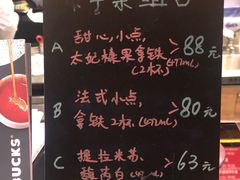 A 甜心小点, >88元
太妃榛果拿铁
(2杯) (477mL)
B 法式小点, >80元
拿铁2杯 (477mL)
C 提拉米苏, >63元
馥芮白